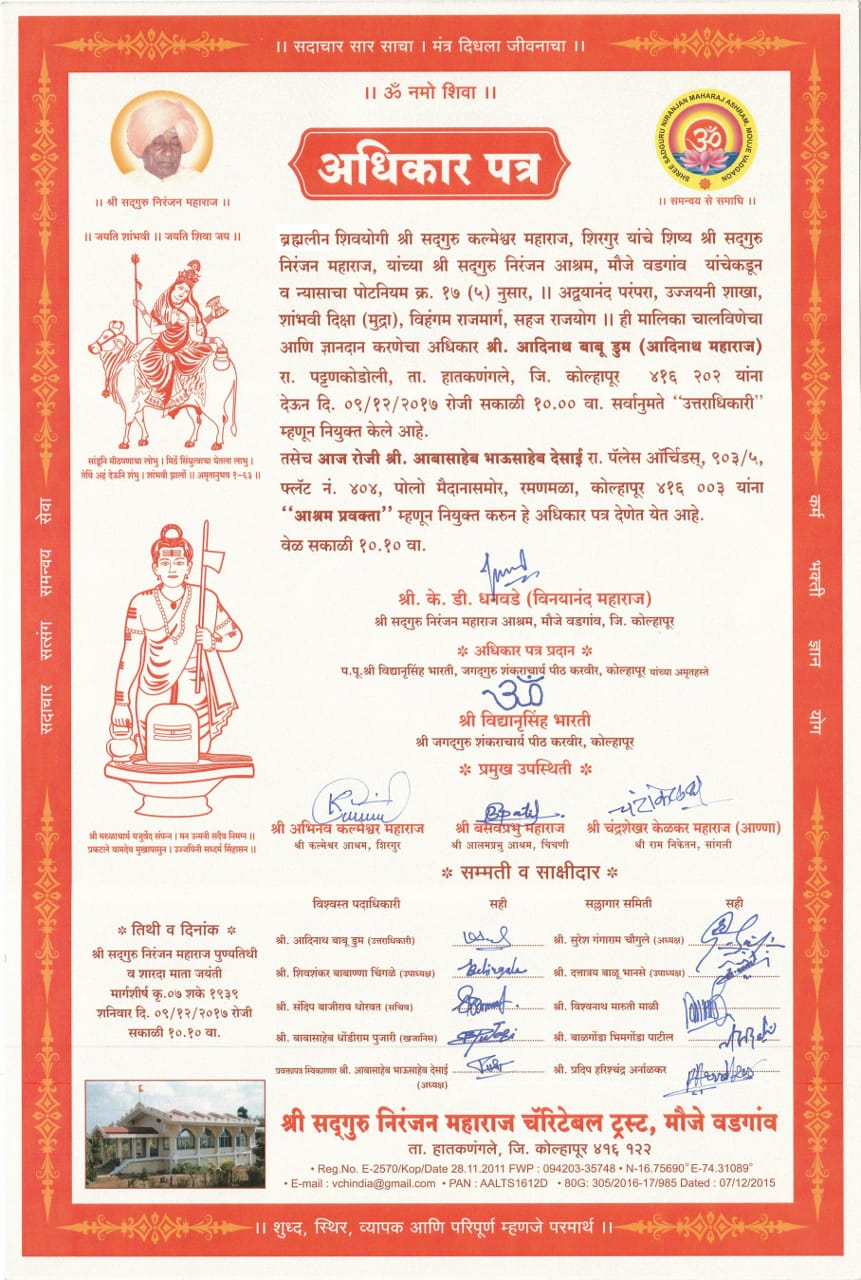 ।। सदाचार सार साचा । मंत्र दिधला जीवनाचा ।।
।। ॐ नमो शिवा ।।
अधिकार पत्र
।। श्री सद्‌गुरु निरंजन महाराज ।।
SHREE SADGURU NIRANJAN MAHARAJ ASHRAM, MOUJE VADGAON
ॐ
।। समन्वय से समाधि ।।
।। जयति शांभवी ।। जयति शिवा जय ।।
ब्रह्मलीन शिवयोगी श्री सद्‌गुरु कल्मेश्वर महाराज, शिरगुर यांचे शिष्य श्री सद्‌गुरु
निरंजन महाराज, यांच्या श्री सद्‌गुरु निरंजन आश्रम, मौजे वडगांव यांचेकडून
व न्यासाचा पोटनियम क्र. १७ (५) नुसार, ।। अद्वयानंद परंपरा, उज्जयनी शाखा,
शांभवी दिक्षा (मुद्रा), विहंगम राजमार्ग, सहज राजयोग ।। ही मालिका चालविणेचा
आणि ज्ञानदान करणेचा अधिकार श्री. आदिनाथ बाबू डुम (आदिनाथ महाराज)
रा. पट्टणकोडोली, ता. हातकणंगले, जि. कोल्हापूर ४१६ २०२ यांना
देऊन दि. ०९/१२/२०१७ रोजी सकाळी १०.०० वा. सर्वानुमते "उत्तराधिकारी"
म्हणून नियुक्त केले आहे.
तसेच आज रोजी श्री. आबासाहेब भाऊसाहेब देसाई रा. पॅलेस ऑर्चिडस्, ९०३/५,
फ्लॅट नं. ४०४, पोलो मैदानासमोर, रमणमळा, कोल्हापूर ४१६ ००३ यांना
"आश्रम प्रवक्ता" म्हणून नियुक्त करुन हे अधिकार पत्र देणेत येत आहे.
वेळ सकाळी १०.१० वा.
सांडूनि मीठपणाचा लोभु । मिठें सिंधुत्वाचा घेतला लाभु ।
तेविं अहं देऊनि शंभु । शांभवी झालों ।। अमृतानुभव १-६३ ।।
सदाचार सत्संग समन्वय सेवा
कर्म भक्ती ज्ञान योग
श्री. के. डी. धनवडे (विनयानंद महाराज)
श्री सद्‌गुरु निरंजन महाराज आश्रम, मौजे वडगांव, जि. कोल्हापूर
❊ अधिकार पत्र प्रदान ❊
प.पू.श्री विद्यानृसिंह भारती, जगद्‌गुरु शंकराचार्य पीठ करवीर, कोल्हापूर यांच्या अमृतहस्ते
ॐ
श्री विद्यानृसिंह भारती
श्री जगद्‌गुरु शंकराचार्य पीठ करवीर, कोल्हापूर
❊ प्रमुख उपस्थिती ❊
B.Patil
चंद्रकेळकर
श्री अभिनव कल्मेश्वर महाराज श्री बसवप्रभु महाराज श्री चंद्रशेखर केळकर महाराज (आण्णा)
श्री कल्मेश्वर आश्रम, शिरगुर श्री आलमप्रभु आश्रम, चिंचणी श्री राम निकेतन, सांगली
श्री मरुळाचार्य यजुर्वेद संपन्न । मन उन्मनी सदैव निमग्न ।।
प्रकटले वामदेव मुखापासुन । उज्जयिनी सध्दर्म सिंहासन ।।
❊ सम्मती व साक्षीदार ❊
विश्वस्त पदाधिकारी सही सल्लागार समिती सही
श्री. आदिनाथ बाबू डुम (उत्तराधिकारी) श्री. सुरेश गंगाराम चौगुले (अध्यक्ष)
श्री. शिवशंकर बाबाण्णा चिंगळे (उपाध्यक्ष) श्री. दत्तात्रय बाळू भानसे (उपाध्यक्ष)
श्री. संदिप बाजीराव थोरवत (सचिव) श्री. विश्वनाथ मारुती माळी
श्री. बाबासाहेब धोंडीराम पुजारी (खजानिस) श्री. बाळगोंडा भिमगोंडा पाटील
प्रवक्तापत्र स्विकारणार श्री. आबासाहेब भाऊसाहेब देसाई श्री. प्रदिप हरिश्चंद्र अर्नाळकर
(अध्यक्ष)
❊ तिथी व दिनांक ❊
श्री सद्‌गुरु निरंजन महाराज पुण्यतिथी
व शारदा माता जयंती
मार्गशीर्ष कृ.०७ शके १९३९
शनिवार दि. ०९/१२/२०१७ रोजी
सकाळी १०.१० वा.
श्री सद्‌गुरु निरंजन महाराज चॅरिटेबल ट्रस्ट, मौजे वडगांव
ता. हातकणंगले, जि. कोल्हापूर ४१६ १२२
• Reg.No. E-2570/Kop/Date 28.11.2011 FWP : 094203-35748 • N-16.75690° E-74.31089°
• E-mail : vchindia@gmail.com • PAN : AALTS1612D • 80G: 305/2016-17/985 Dated : 07/12/2015
।। शुध्द, स्थिर, व्यापक आणि परिपूर्ण म्हणजे परमार्थ ।।